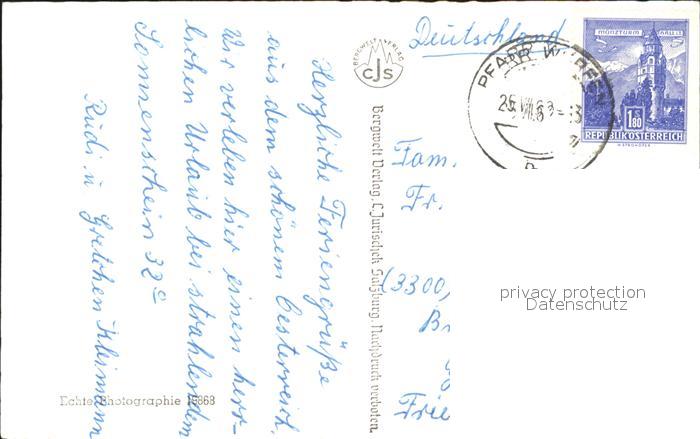 Herzliche Feriengrüße
aus dem schönem Oesterreich.
Wir verleben hier einen herr-
lichen Urlaub bei strahlendem
Sonnenschein 32°
Rudi u Gretchen Kleimann
Echte Photographie
BERGWELT VERLAG
CJS
Bergwelt Verlag, C. Jurischek Salzburg. Nachdruck verboten.
Deutschland
PFARRWERFEN
MÜNZTURM HALL I.T.
1.80
REPUBLIK ÖSTERREICH
Fam.
Fr.
(3300,
Br
Frie
privacy protection
Datenschutz